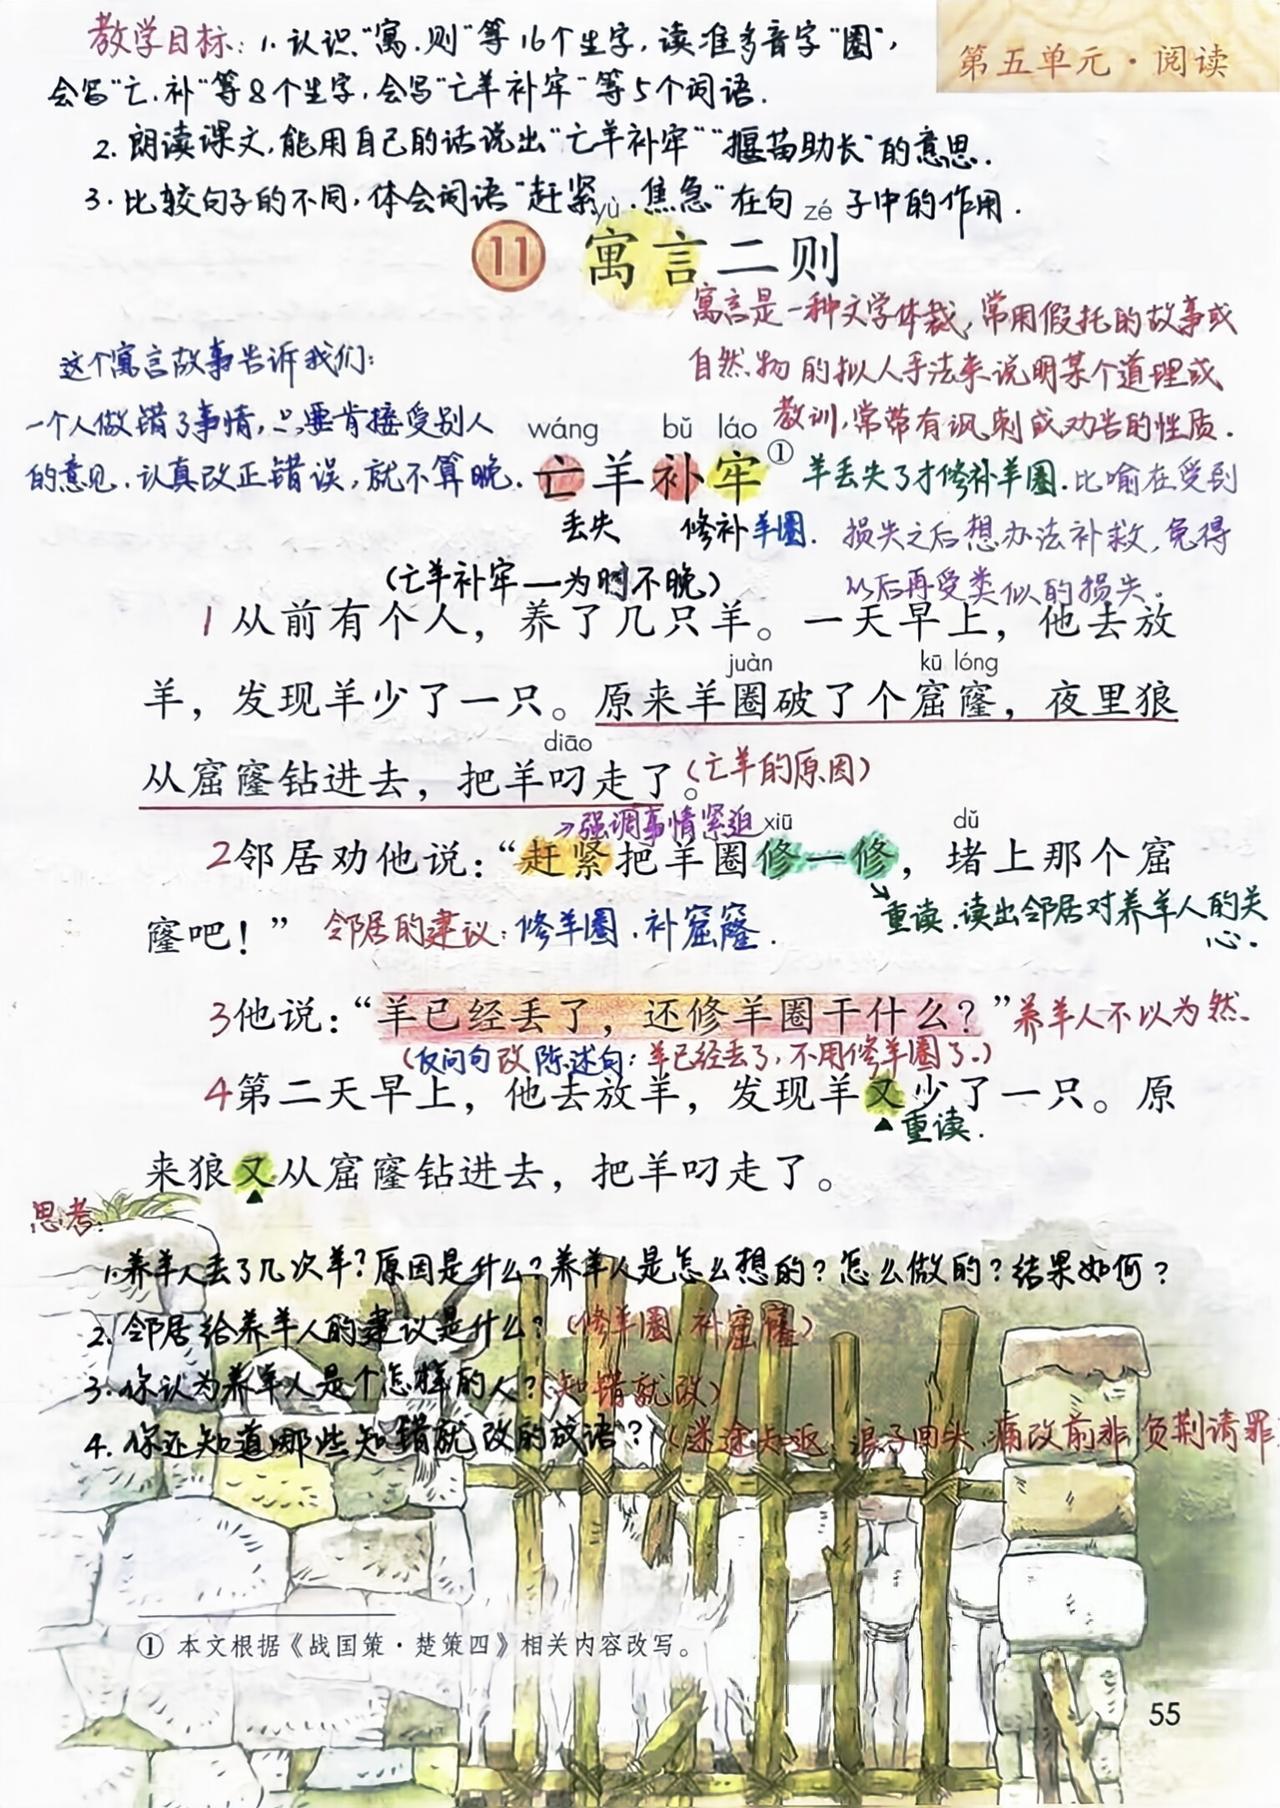 教学目标：1.认识“寓.则”等16个生字，读准多音字“圈”，
第五单元·阅读
会写“亡.补”等8个生字，会写“亡羊补牢”等5个词语.
2.朗读课文，能用自己的话说出“亡羊补牢”“揠苗助长”的意思.
3.比较句子的不同，体会词语“赶紧.焦急”在句子中的作用.
yù zé
11 寓言二则
寓言是一种文学体裁，常用假托的故事或
自然物的拟人手法来说明某个道理或
教训，常带有讽刺或劝告的性质.
这个寓言故事告诉我们：
一个人做错了事情，只要肯接受别人
的意见.认真改正错误，就不算晚.
wáng bǔ láo
亡羊补牢①
丢失 修补羊圈.
羊丢失了才修补羊圈.比喻在受到
损失之后想办法补救，免得
以后再受类似的损失.
（亡羊补牢——为时不晚）
1从前有个人，养了几只羊。一天早上，他去放
juàn kū lóng
羊，发现羊少了一只。原来羊圈破了个窟窿，夜里狼
diāo
从窟窿钻进去，把羊叼走了。（亡羊的原因）
→强调事情紧迫 xiū dǔ
2邻居劝他说：“赶紧把羊圈修一修，堵上那个窟
重读.读出邻居对养羊人的关
心.
窿吧！” 邻居的建议：修羊圈.补窟窿.
3他说：“羊已经丢了，还修羊圈干什么？”养羊人不以为然.
（反问句改陈述句：羊已经丢了，不用修羊圈了.）
4第二天早上，他去放羊，发现羊又少了一只。原
重读.
来狼又从窟窿钻进去，把羊叼走了。
思考：
1.养羊人丢了几次羊？原因是什么？养羊人是怎么想的？怎么做的？结果如何？
2.邻居给养羊人的建议是什么？（修羊圈 补窟窿）
3.你认为养羊人是个怎样的人？（知错就改）
4.你还知道哪些知错就改的成语？（迷途知返.浪子回头.痛改前非.负荆请罪
① 本文根据《战国策·楚策四》相关内容改写。
55